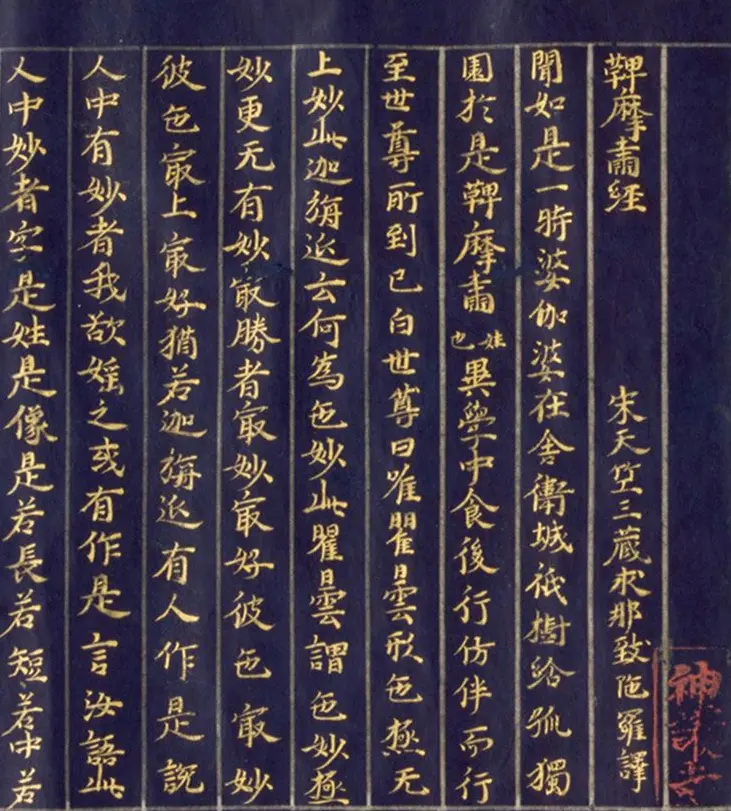 神護寺
鞞摩肅経　宋天竺三蔵求那跋陁羅譯
聞如是一時婆伽婆在舎衛城祇樹給孤獨
園於是鞞摩肅姓也異學中食後行仿伴而行
至世尊所到已白世尊曰唯瞿曇形色極无
上妙此迦旃延云何為色妙此瞿曇謂色妙極
妙更无有妙㝡勝者㝡妙㝡好彼色㝡妙
彼色㝡上㝡好猶若迦旃延有人作是説
人中有妙者我欲婬之或有作是言汝語此
人中妙者字是姓是像是若長若短若中若